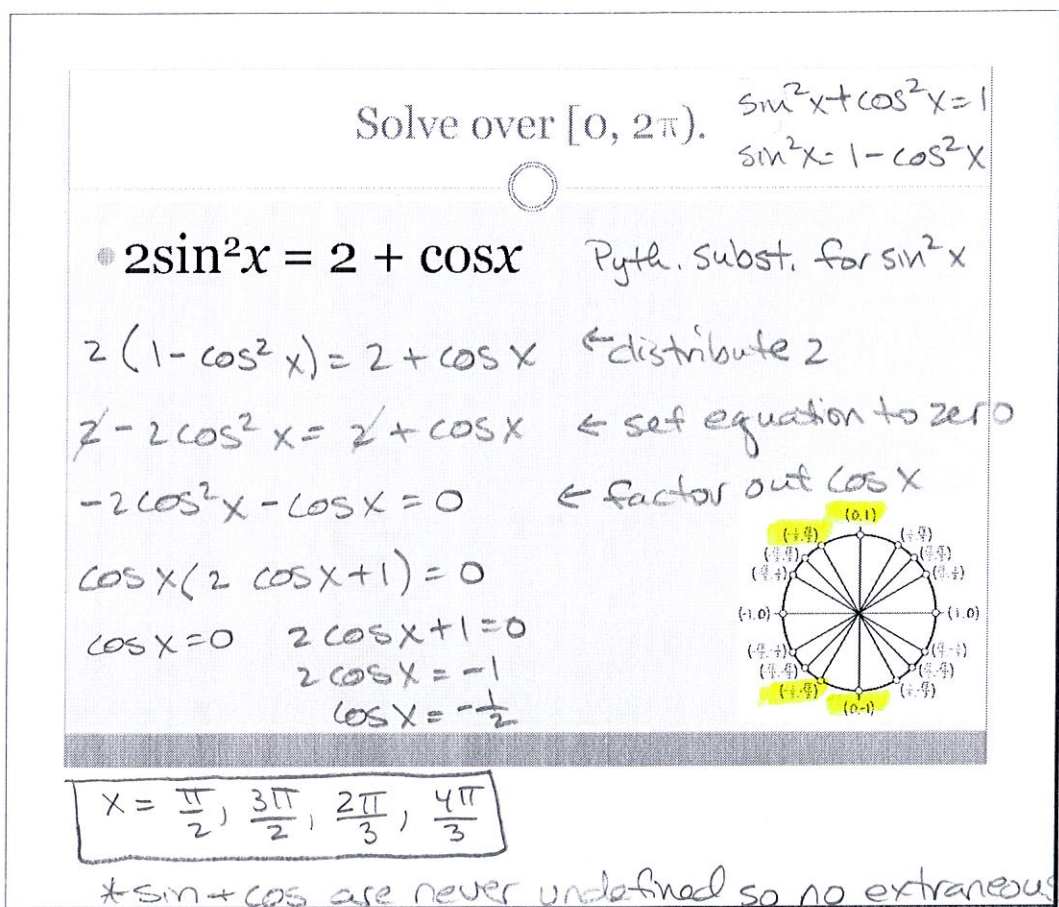 Solve over [0, 2π).
sin²x + cos²x = 1
sin²x = 1 - cos²x
• 2sin²x = 2 + cosx
Pyth. subst. for sin²x
2(1 - cos²x) = 2 + cosx ← distribute 2
2 - 2cos²x = 2 + cosx ← set equation to zero
-2cos²x - cosx = 0 ← factor out cosx
cosx(2 cosx + 1) = 0
cosx = 0 2cosx + 1 = 0
2cosx = -1
cosx = -1/2
(0,1)
(-1,0) (1,0)
(0,-1)
x = π/2, 3π/2, 2π/3, 4π/3
*sin + cos are never undefined so no extraneous